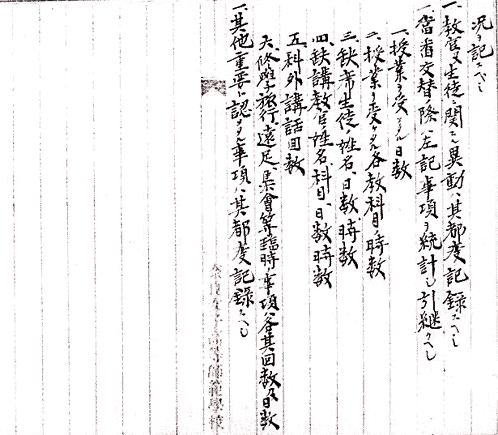 況ヲ記スヘシ
一、教官及生徒ニ関スル異動ハ其都度記録スヘシ
一、當番交替ノ際ハ左記事項ヲ統計シ引継クヘシ
一、授業ヲ受ケタル日数
二、授業ヲ受ケタル各教科目ノ時数
三、缺席生徒ノ姓名、日数時数
四、缺講教官ノ姓名、科目、日数時数
五、科外講話回数
六、修學旅行、遠足、集會等臨時ノ事項ハ各其回数及日数
一、其他重要ト認ムル事項ハ其都度記録スヘシ
高等師範學校